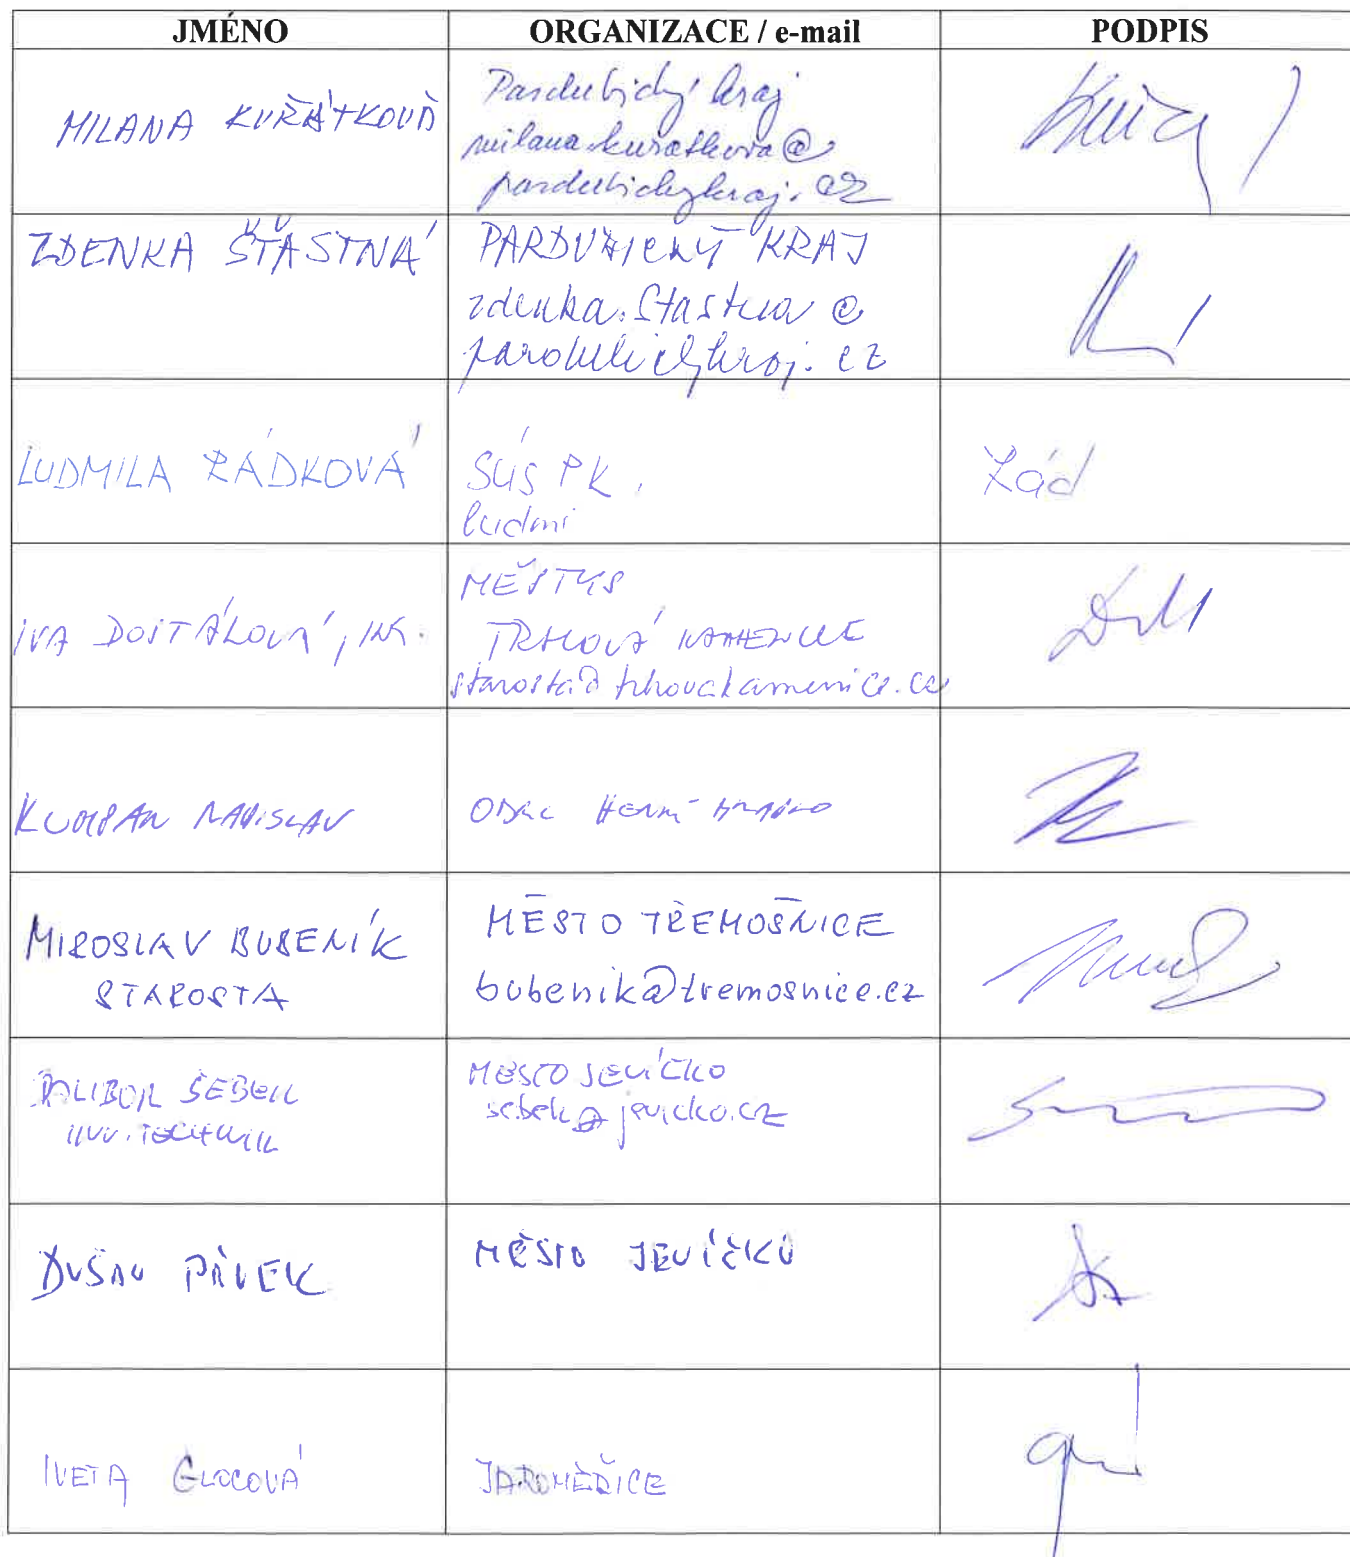 JMÉNO ORGANIZACE / e-mail PODPIS
MILANA KUŘÁTKOVÁ
Pardubický kraj
milana.kuratkova@
pardubickykraj.cz
ZDENKA ŠŤASTNÁ
PARDUBICKÝ KRAJ
zdenka.stastna@
pardubickykraj.cz
LUDMILA ŘÁDKOVÁ
SÚS PK,
ludmi
IVA DOSTÁLOVÁ, ING.
MĚSTYS
TRHOVÁ KAMENICE
starosta@trhovakamenice.cz
KUMPAN LADISLAV
OBEC
MIROSLAV BUBENÍK
STAROSTA
MĚSTO TŘEMOŠNICE
bubenik@tremosnice.cz
DALIBOR ŠEBEK
INV. TECHNIK
MĚSTO JEVÍČKO
sebek@jevicko.cz
DUŠAN PÁVEK
MĚSTO JEVÍČKO
IVETA GLOCOVÁ
JAROMĚŘICE